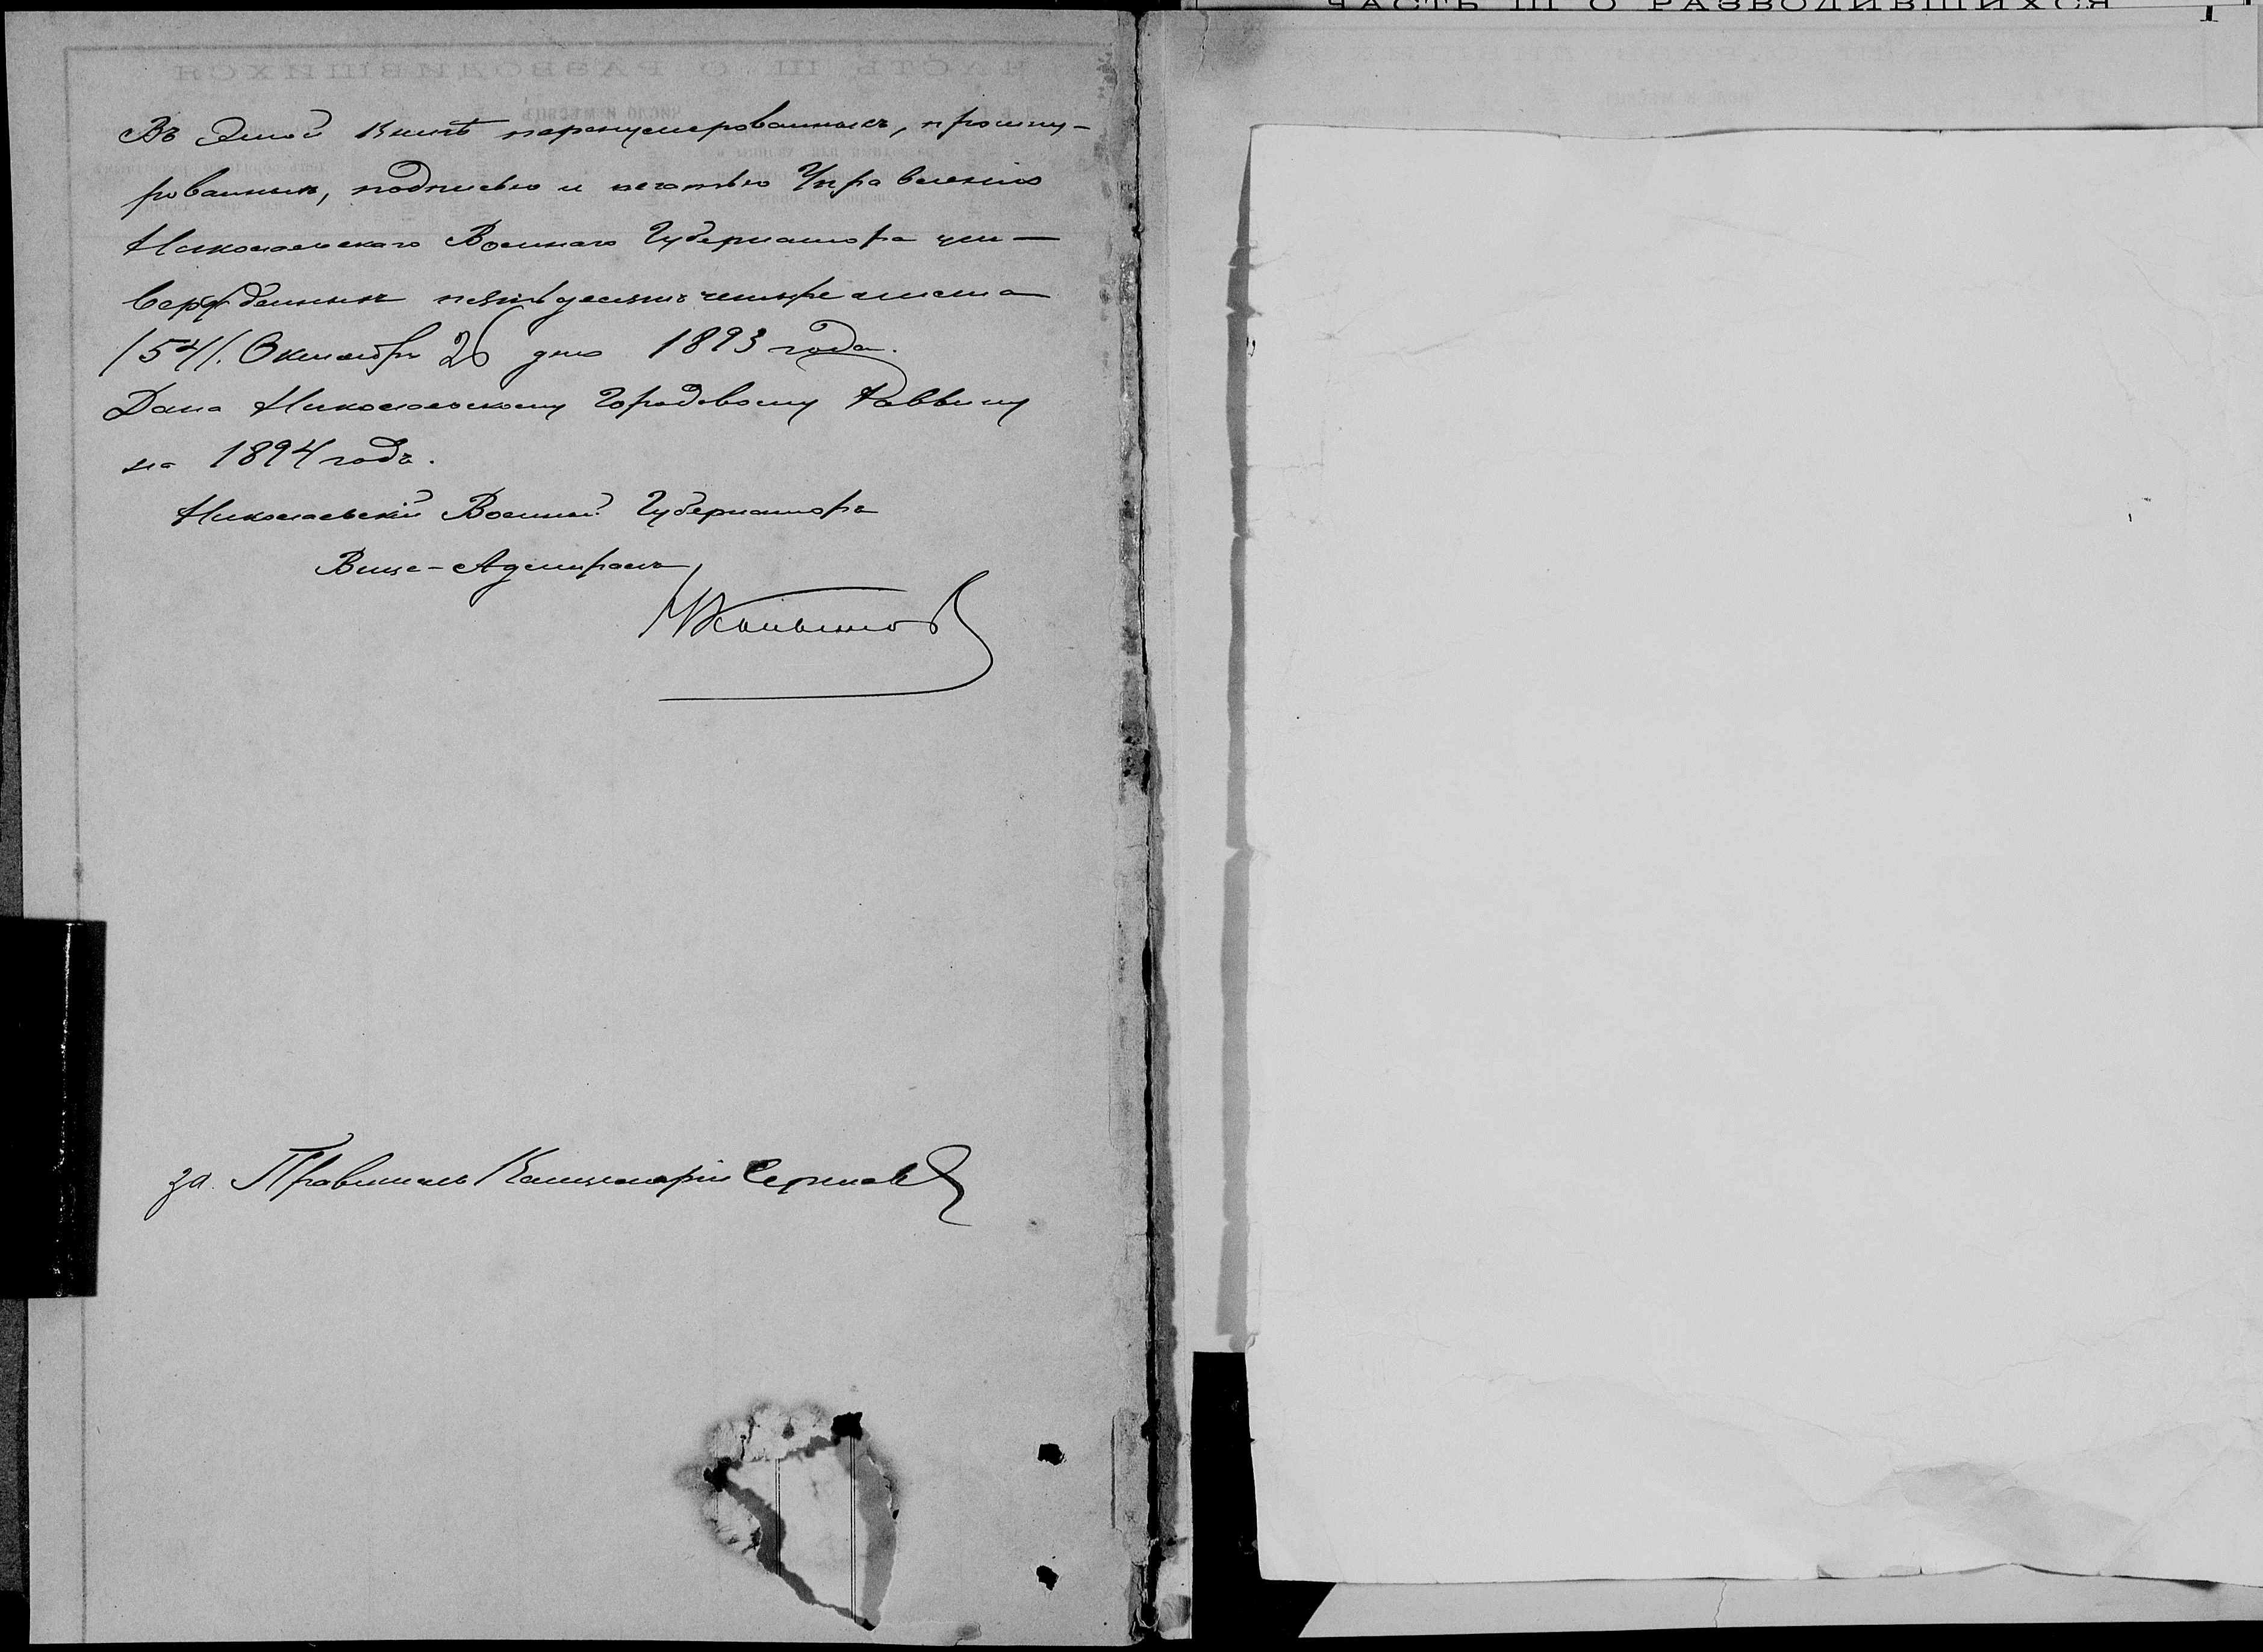 ЧАСТЬ III О РАЗВОДИВШИХСЯ
Въ этой книгѣ перенумерованныхъ, прошну-
рованныхъ, подписью и печатью Управленія
Николаевскаго Военнаго Губернатора ут-
вержденныхъ пятьдесятъ четыре листа
/54/. Октября 26 дня 1893 года.
Дана Николаевскому Городовому Раввину
на 1894 годъ.
Николаевскій Военный Губернаторъ
Вице-Адмиралъ,
за. Правитель Канцеляріи